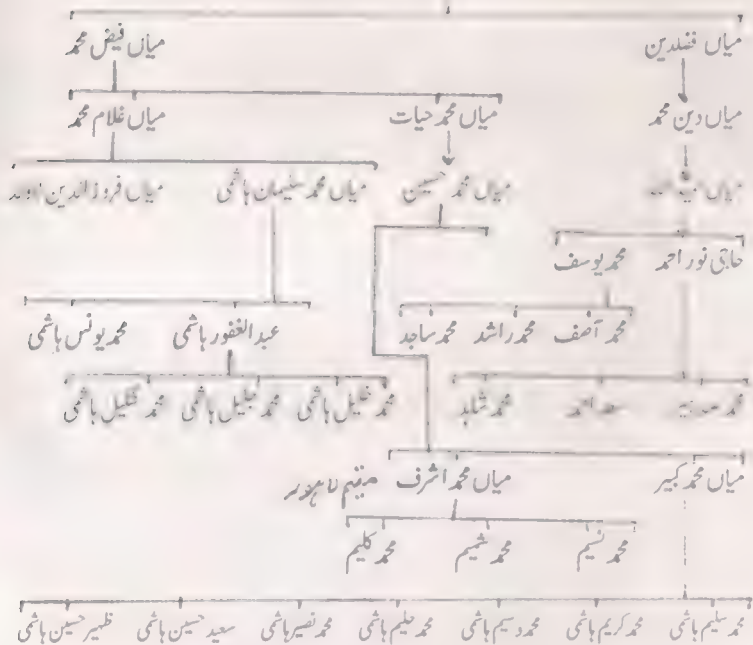 میاں فضلدین میاں فیض محمد
میاں دین محمد میاں محمد حیات میاں غلام محمد
میاں میاں محمد حسین میاں محمد سلیمان ہاشمی میاں فروز الدین
حاجی نور احمد محمد یوسف
محمد آصف محمد راشد محمد ساجد عبدالغفور ہاشمی محمد یونس ہاشمی
محمد سعد احمد محمد شاہد محمد خلیل ہاشمی محمد جلیل ہاشمی محمد شکیل ہاشمی
میاں محمد کبیر میاں محمد اشرف مقیم لاہور
محمد نسیم محمد شمیم محمد کلیم
محمد سلیم ہاشمی محمد کریم ہاشمی محمد وسیم ہاشمی محمد حلیم ہاشمی محمد نصیر ہاشمی سعید حسین ہاشمی ظہیر حسین ہاشمی